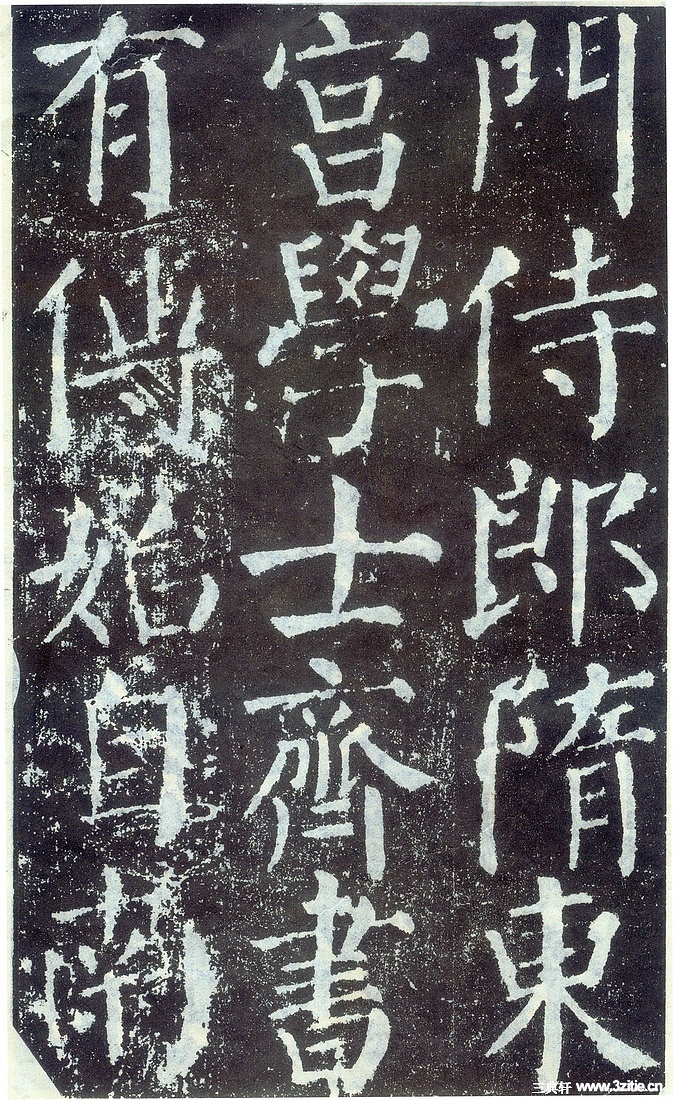 門侍郎隋東
宮學士齊書
有傳始自南
三典轩 www.3zitie.cn